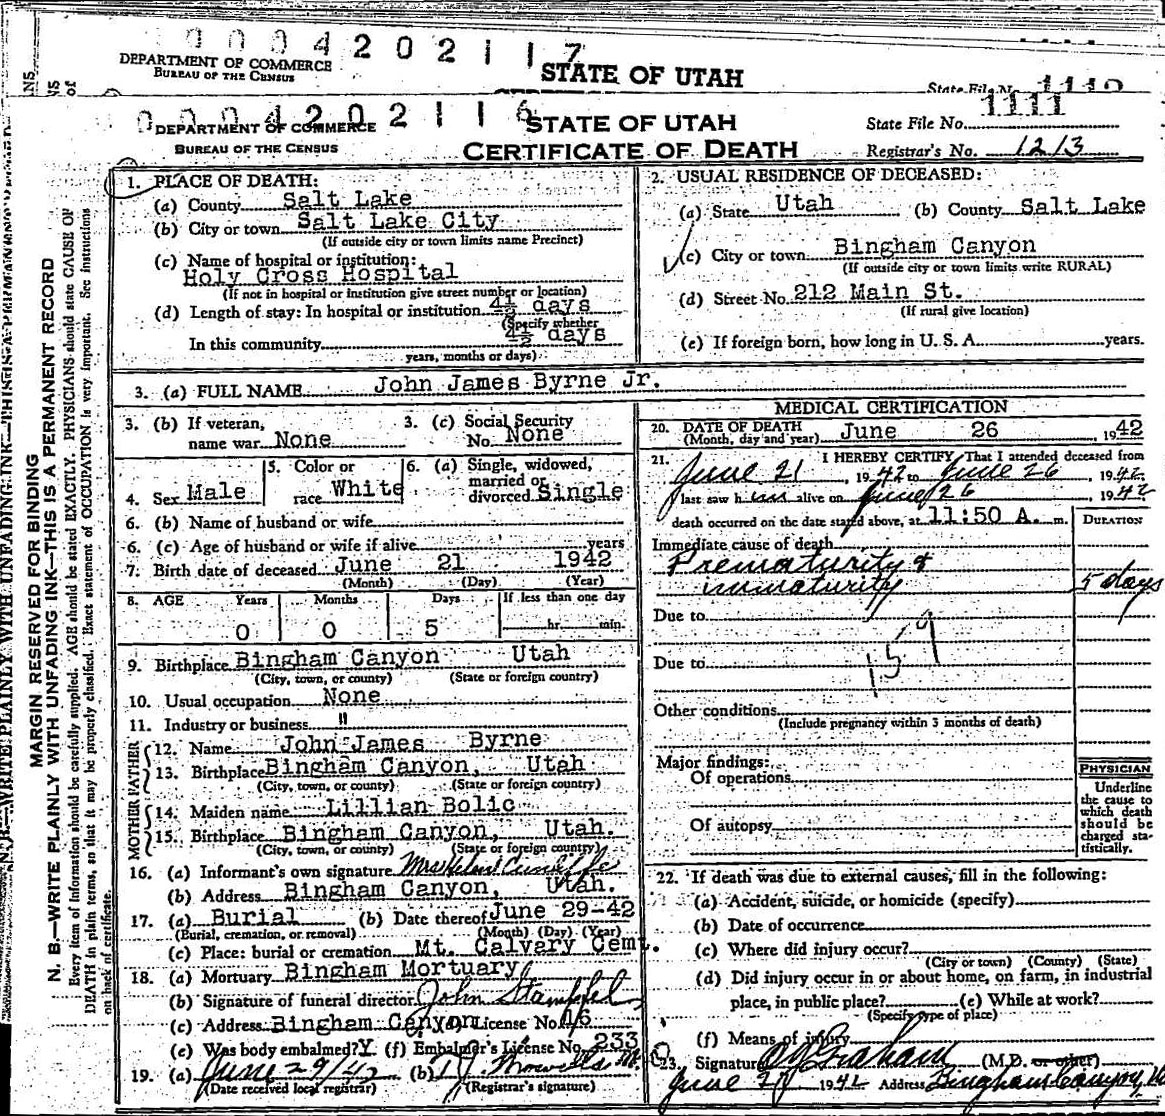 0 0 0 4 2 0 2 1 1 7
DEPARTMENT OF COMMERCE
BUREAU OF THE CENSUS
STATE OF UTAH
State File No.
0 0 0 4 2 0 2 1 1 6
DEPARTMENT OF COMMERCE
BUREAU OF THE CENSUS
STATE OF UTAH
CERTIFICATE OF DEATH
State File No. 1111
Registrar's No. 1213
MARGIN RESERVED FOR BINDING
N. B.—WRITE PLAINLY WITH UNFADING INK—THIS IS A PERMANENT RECORD
Every item of information should be carefully supplied. AGE should be stated EXACTLY. PHYSICIANS should state CAUSE OF
DEATH in plain terms, so that it may be properly classified. Exact statement of OCCUPATION is very important. See instructions
on back of certificate.
1. PLACE OF DEATH:
(a) County Salt Lake
(b) City or town Salt Lake City
(If outside city or town limits name Precinct)
(c) Name of hospital or institution:
Holy Cross Hospital
(If not in hospital or institution give street number or location)
(d) Length of stay: In hospital or institution 4½ days
(Specify whether
In this community 4½ days
years, months or days)
2. USUAL RESIDENCE OF DECEASED:
(a) State Utah (b) County Salt Lake
(c) City or town Bingham Canyon
(If outside city or town limits write RURAL)
(d) Street No. 212 Main St.
(If rural give location)
(e) If foreign born, how long in U. S. A. years.
3. (a) FULL NAME John James Byrne Jr.
3. (b) If veteran, name war None
3. (c) Social Security No. None
4. Sex Male
5. Color or race White
6. (a) Single, widowed, married or divorced Single
6. (b) Name of husband or wife
6. (c) Age of husband or wife if alive years
7. Birth date of deceased June 21 1942
(Month) (Day) (Year)
8. AGE Years Months Days If less than one day
0 0 5 hr. min.
9. Birthplace Bingham Canyon Utah
(City, town, or county) (State or foreign country)
10. Usual occupation None
11. Industry or business "
FATHER
12. Name John James Byrne
13. Birthplace Bingham Canyon, Utah
(City, town, or county) (State or foreign country)
MOTHER
14. Maiden name Lillian Bolic
15. Birthplace Bingham Canyon, Utah.
(City, town, or county) (State or foreign country)
16. (a) Informant's own signature Mrs Helen
(b) Address Bingham Canyon, Utah.
17. (a) Burial (b) Date thereof June 29-42
(Burial, cremation, or removal) (Month) (Day) (Year)
(c) Place: burial or cremation Mt. Calvary Cemt.
18. (a) Mortuary Bingham Mortuary
(b) Signature of funeral director John Stampfel
(c) Address Bingham Canyon (d) License No. 16
(e) Was body embalmed? Y (f) Embalmer's License No. 233
19. (a) June 29/42 (b)
(Date received local registrar) (Registrar's signature)
MEDICAL CERTIFICATION
20. DATE OF DEATH
(Month, day and year) June 26, 1942
21. I HEREBY CERTIFY That I attended deceased from
June 21, 1942 to June 26, 1942
I last saw him alive on June 26 1942
death occurred on the date stated above, at 11:50 A. m. DURATION
Immediate cause of death
Prematurity &
immaturity 5 days
Due to
159
Due to
Other conditions
(Include pregnancy within 3 months of death)
Major findings:
Of operations
Of autopsy
PHYSICIAN
Underline
the cause to
which death
should be
charged sta-
tistically.
22. If death was due to external causes, fill in the following:
(a) Accident, suicide, or homicide (specify)
(b) Date of occurrence
(c) Where did injury occur?
(City or town) (County) (State)
(d) Did injury occur in or about home, on farm, in industrial
place, in public place? (e) While at work?
(Specify type of place)
(f) Means of injury
23. Signature Graham (M.D. or other)
June 1942 Address Bingham Canyon,